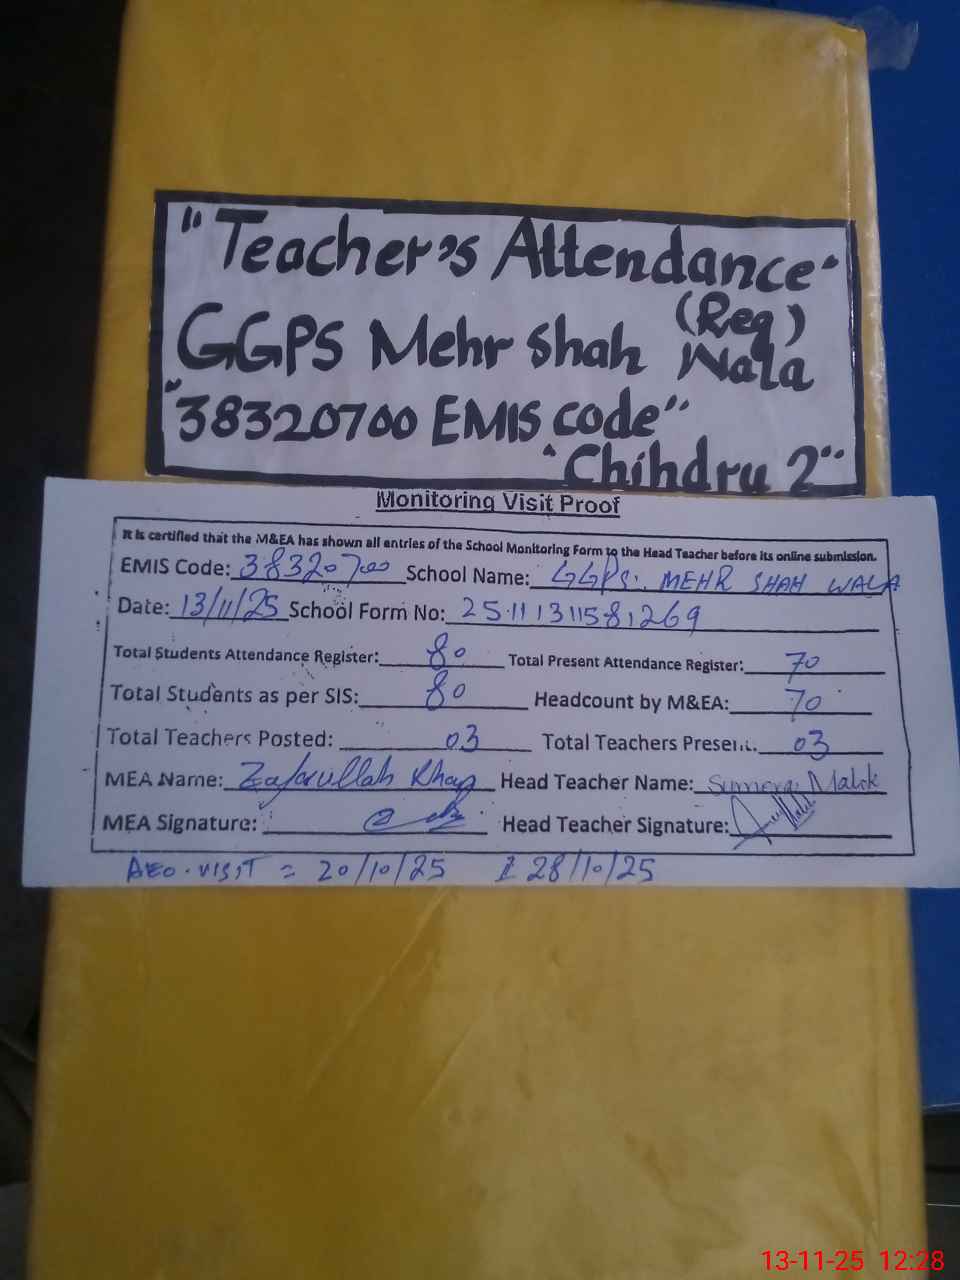 "Teacher's Attendance"
(Reg)
GGPS Mehr Shah Wala
"38320700 EMIS code"
"Chihdru 2"
Monitoring Visit Proof
It is certified that the M&EA has shown all entries of the School Monitoring Form to the Head Teacher before its online submission.
EMIS Code: 38320700 School Name: GGPS. MEHR SHAH WALA
Date: 13/11/25 School Form No: 25111311581269
Total Students Attendance Register: 80 Total Present Attendance Register: 70
Total Students as per SIS: 80 Headcount by M&EA: 70
Total Teachers Posted: 03 Total Teachers Present: 03
MEA Name: Zafarullah Khan Head Teacher Name: Sumera Malik
MEA Signature: Head Teacher Signature:
AEO. VISIT = 20/10/25 & 28/10/25
13-11-25 12:28